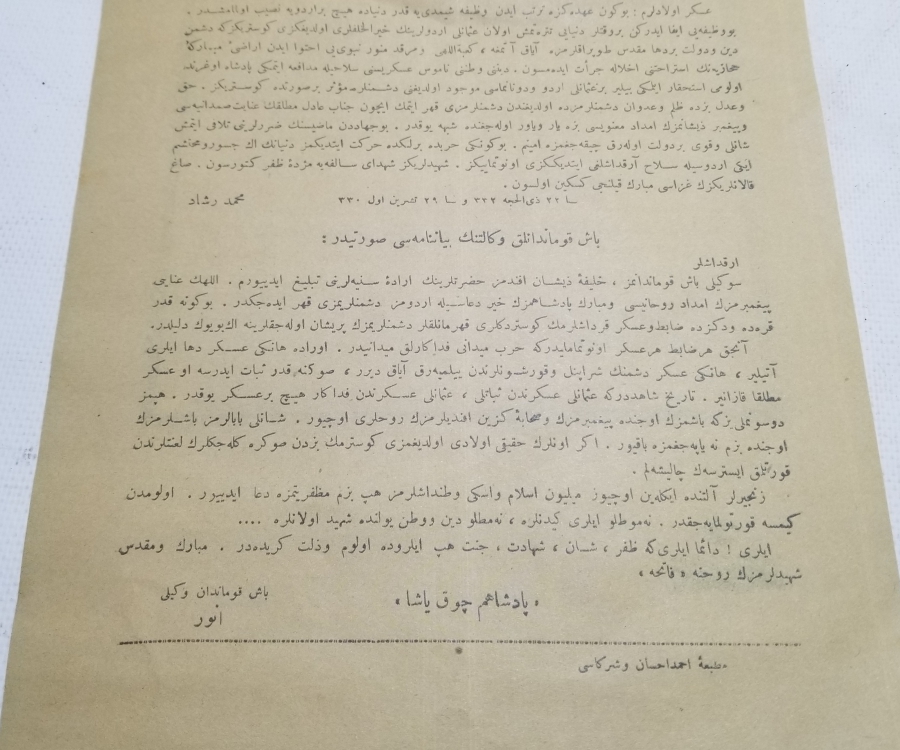 عسكر اولادلرم : بوكون عهده‌كزه ترتب ايدن وظيفه شيمدی‌يه قدر دنياده هيچ براردويه نصيب اولمامشدر .
بووظيفه‌يی ايفا ايدركن بروقتلر دنيايی تتره‌تمش اولان عثمانلی اردولرينك خيرالخلفلری اولديغكزی كوستريكزكه دشمن
دين ودولت بردها مقدس طوپراقلرمزه آياق آتمغه ، كعبة‌اللهی ومرقد منور نبوی‌يی احتوا ايدن اراضیٔ مباركهٔ
حجازيه‌نك استراحتنی اخلاله جرأت ايده‌مسون . دينی وطنی ناموس عسكريسنی سلاحيله مدافعه ايتمكی پادشاه اوغرنده
اولومی استحقار ايتمكی بيلير برعثمانلی اردو ودونانماسی موجود اولديغنی دشمنلره مؤثر برصورتده كوستريكز . حق
وعدل بزده ظلم وعدوان دشمنلرمزده اولديغندن دشمنلرمزی قهر ايتمك ايچون جناب عادل مطلقك عنايت صمدانيه‌سی
وپيغمبر ذيشانمزك امداد معنويسی بزه يار وياور اوله‌جغنده شبهه يوقدر . بوجهاددن ماضيسنك ضررلرينی تلافی ايتمش
شانلی وقوی بردولت اوله‌رق چيقه‌جغمزه امينم . بوكونكی حربده برلكده حركت ايتديكمز دنيانك اك جسور ومحتشم
ايكی اردوسيله سلاح آرقداشلغی ايتديككزی اونوتمايیكز . شهيدلريكز شهدای سالفه‌يه مژدهٔ ظفر كتورسون . صاغ
قالانلريكزك غزاسی مبارك قيلنجی كسكين اولسون .
سا ٢٢ ذی‌الحجه ٣٣٢ و سا ٢٩ تشرين اول ٣٣٠
محمد رشاد
باش قوماندانلق وكالتنك بياننامه‌سی صورتيدر :
ارقداشلر
سوكيلی باش قوماندانمز ، خليفهٔ ذيشان افندمز حضرتلرينك ارادهٔ سنيه‌لرينی تبليغ ايدييورم . اللهك عنايتی
پيغمبرمزك امداد روحانيسی ومبارك پادشاهمزك خير دعاسيله اردومز دشمنلريمزی قهر ايده‌جكدر . بوكونه قدر
قره‌ده ودكزده ضابط وعسكر قرداشلرمك كوستردكلری قهرمانلقلر دشمنلريمزك پريشان اوله‌جقلرينه اك بويوك دليلدر.
آنجق هر ضابط هر عسكر اونوتمامايدركه حرب ميدانی فداكارلق ميدانيدر . اوراده هانكی عسكر دها ايلری
آتيلير ، هانكی عسكر دشمنك شراپنل وقورشونلرندن ييلميه‌رق آياق ديرر ، صوكنه قدر ثبات ايدرسه او عسكر
مطلقا قازانير . تاريخ شاهددركه عثمانلی عسكرندن ثباتلی ، عثمانلی عسكرندن فداكار هيچ برعسكر يوقدر . هپمز
دوشونملی‌يزكه باشمزك اوجنده پيغمبرمزك وصحابهٔ كزين افنديلرمزك روحلری اوچيور . شانلی بابالرمز باشلرمزك
اوجنده بزم نه ياپه‌جغمزه باقيور . اكر اونلرك حقيقی اولادی اولديغمزی كوسترمك بزدن صوكره كله‌جكلرك لعنتلرندن
قورتلق ايسترسه‌ك چاليشه‌لم .
زنجيرلر آلتنده ايكله‌ين اوچيوز ميليون اسلام واسكی وطنداشلرمز هپ بزم مظفريتمزه دعا ايدييور . اولومدن
كيمسه قورتولمايه‌جقدر . نه‌موطلو ايلری كيدنلره ، نه‌مطلو دين ووطن يولنده شهيد اولانلره ....
ايلری ! دائما ايلری‌كه ظفر ، شان ، شهادت ، جنت هپ ايلروده اولوم وذلت كريده‌در . مبارك ومقدس
شهيدلرمزك روحنه « فاتحه »
« پادشاهم چوق ياشا »
باش قوماندان وكيلی
انور
مطبعهٔ احمد احسان وشركاسی